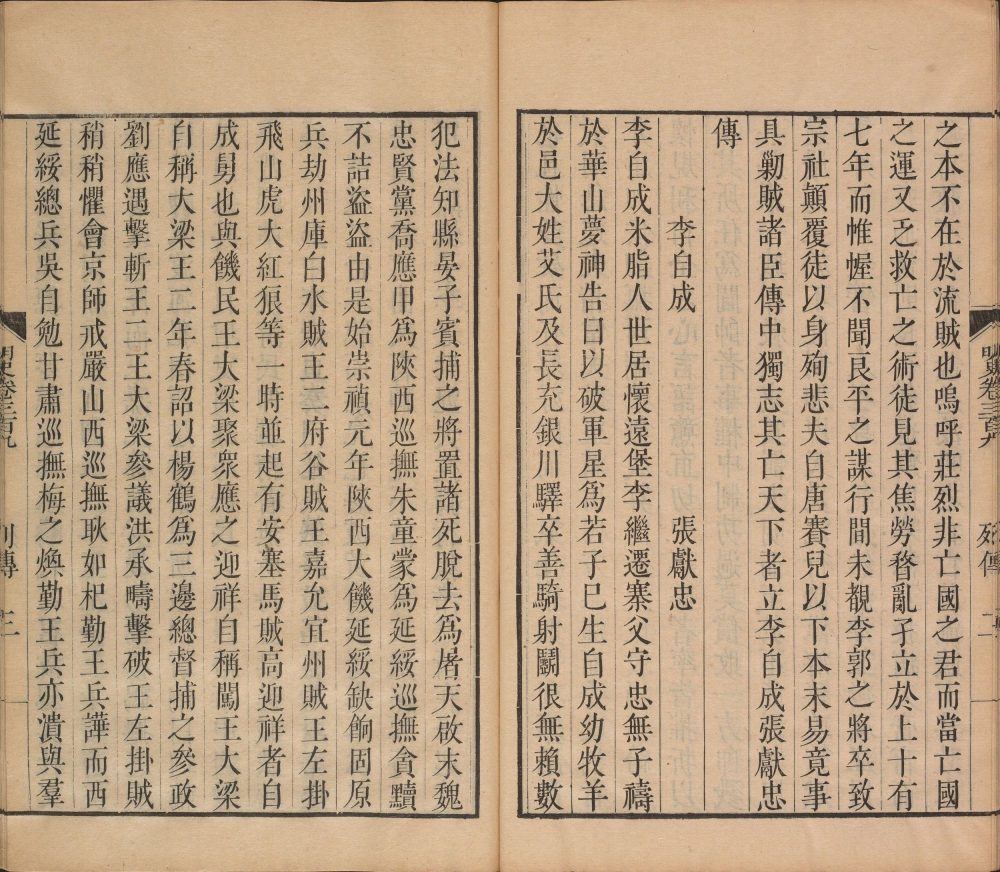 之本不在於流賊也嗚呼莊烈非亡國之君而當亡國
之運又乏救亡之術徒見其焦勞瞀亂孑立於上十有
七年而惟幄不聞良平之謀行間未覩李郭之將卒致
宗社顛覆徒以身殉悲夫自唐賽兒以下本末易竟事
具勦賊諸臣傳中獨志其亡天下者立李自成張獻忠
傳
李自成 張獻忠
李自成米脂人世居懷遠堡李繼遷寨父守忠無子禱
於華山夢神告曰以破軍星爲若子已生自成幼牧羊
於邑大姓艾氏及長充銀川驛卒善騎射鬭很無賴數
明史卷三百九
列傳
犯法知縣晏子賓捕之將置諸死脫去爲屠天啟末魏
忠賢黨喬應甲爲陝西巡撫朱童蒙爲延綏巡撫貪黷
不詰盜盜由是始崇禎元年陝西大饑延綏缺餉固原
兵劫州庫白水賊王二府谷賊王嘉允宜州賊王左掛
飛山虎大紅狼等一時並起有安塞馬賊高迎祥者自
成舅也與饑民王大梁聚衆應之迎祥自稱闖王大梁
自稱大梁王二年春詔以楊鶴爲三邊總督捕之參政
劉應遇擊斬王二王大梁參議洪承疇擊破王左掛賊
稍稍懼會京師戒嚴山西巡撫耿如杞勤王兵譁而西
延綏總兵吳自勉甘肅巡撫梅之煥勤王兵亦潰與羣
明史卷三百九
列傳